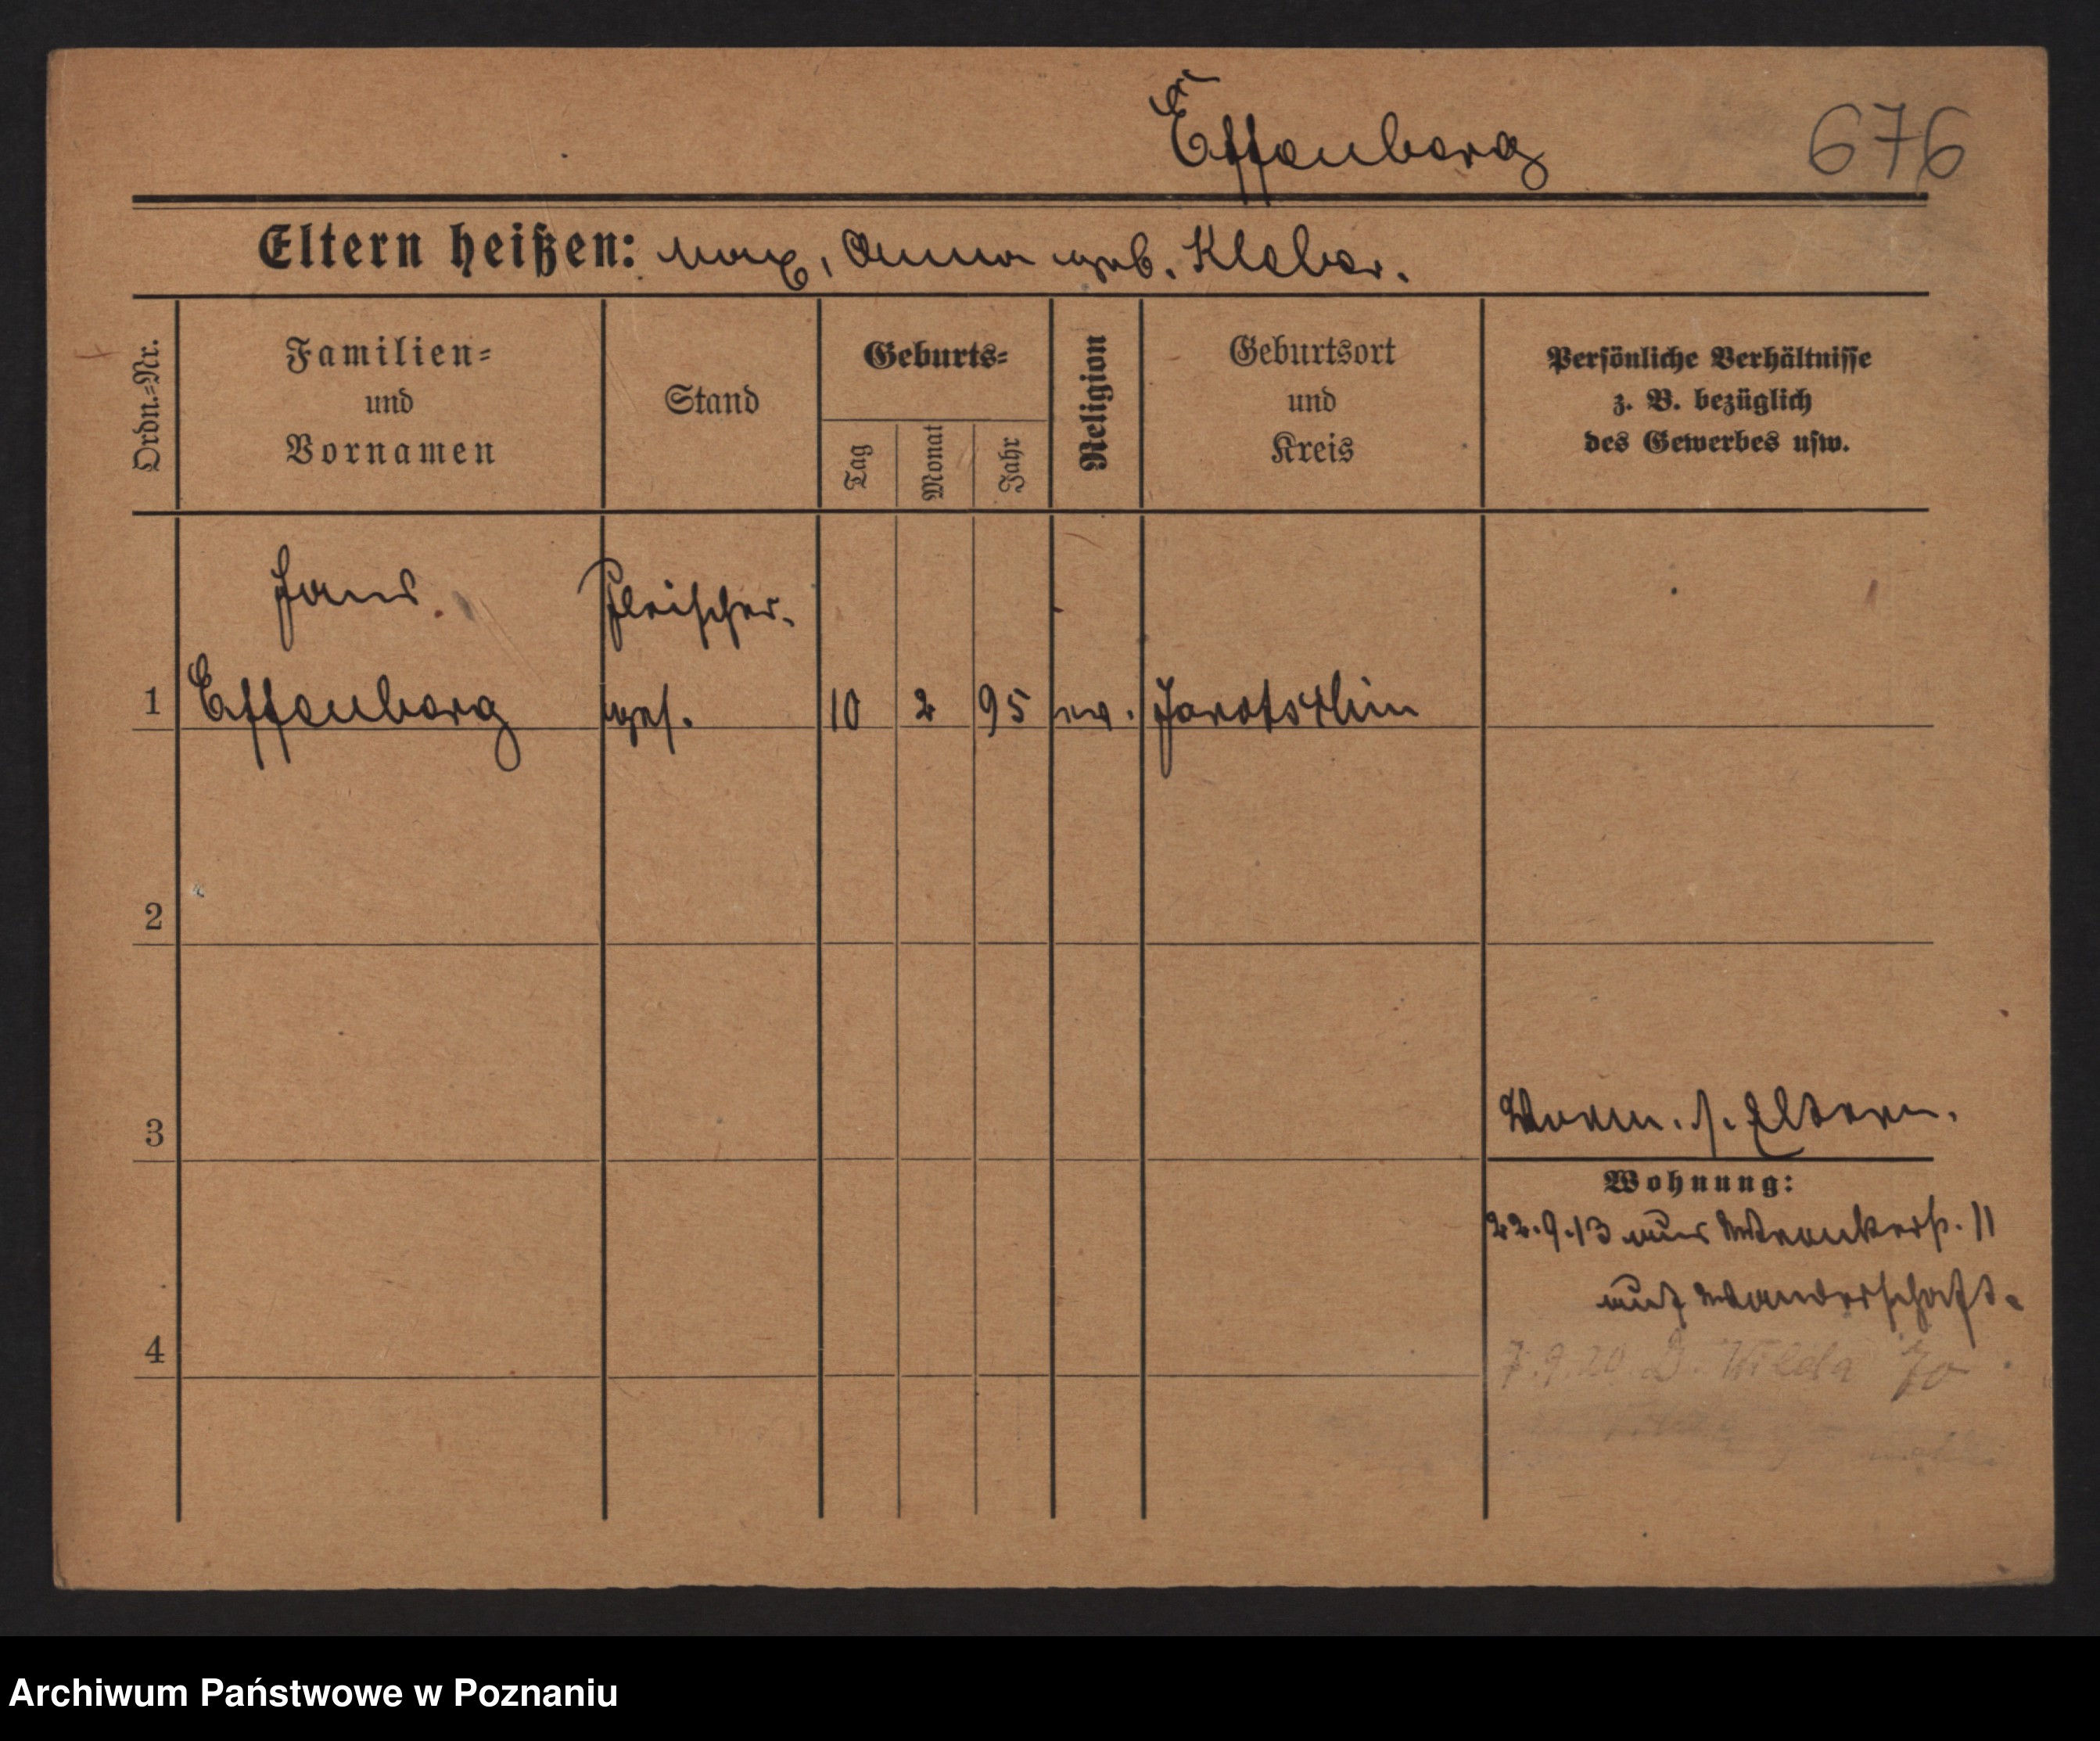 Effenberg
676
Eltern heißen: Max, Anna geb. Kleber.
Ordn.=Nr.
Familien=
und
Vornamen
Stand
Geburts=
Tag
Monat
Jahr
Religion
Geburtsort
und
Kreis
Persönliche Verhältnisse
z. B. bezüglich
des Gewerbes usw.
Hans Fleischer-
1 Effenberg ges. 10 2 95 ev. Jarotschin
2
3
Vorm. s. Eltern.
Wohnung:
22.9.13 aus Wronkerstr. 11
auf Wanderschaft.
4
7.9.20 D. Wilda 70
Archiwum Państwowe w Poznaniu